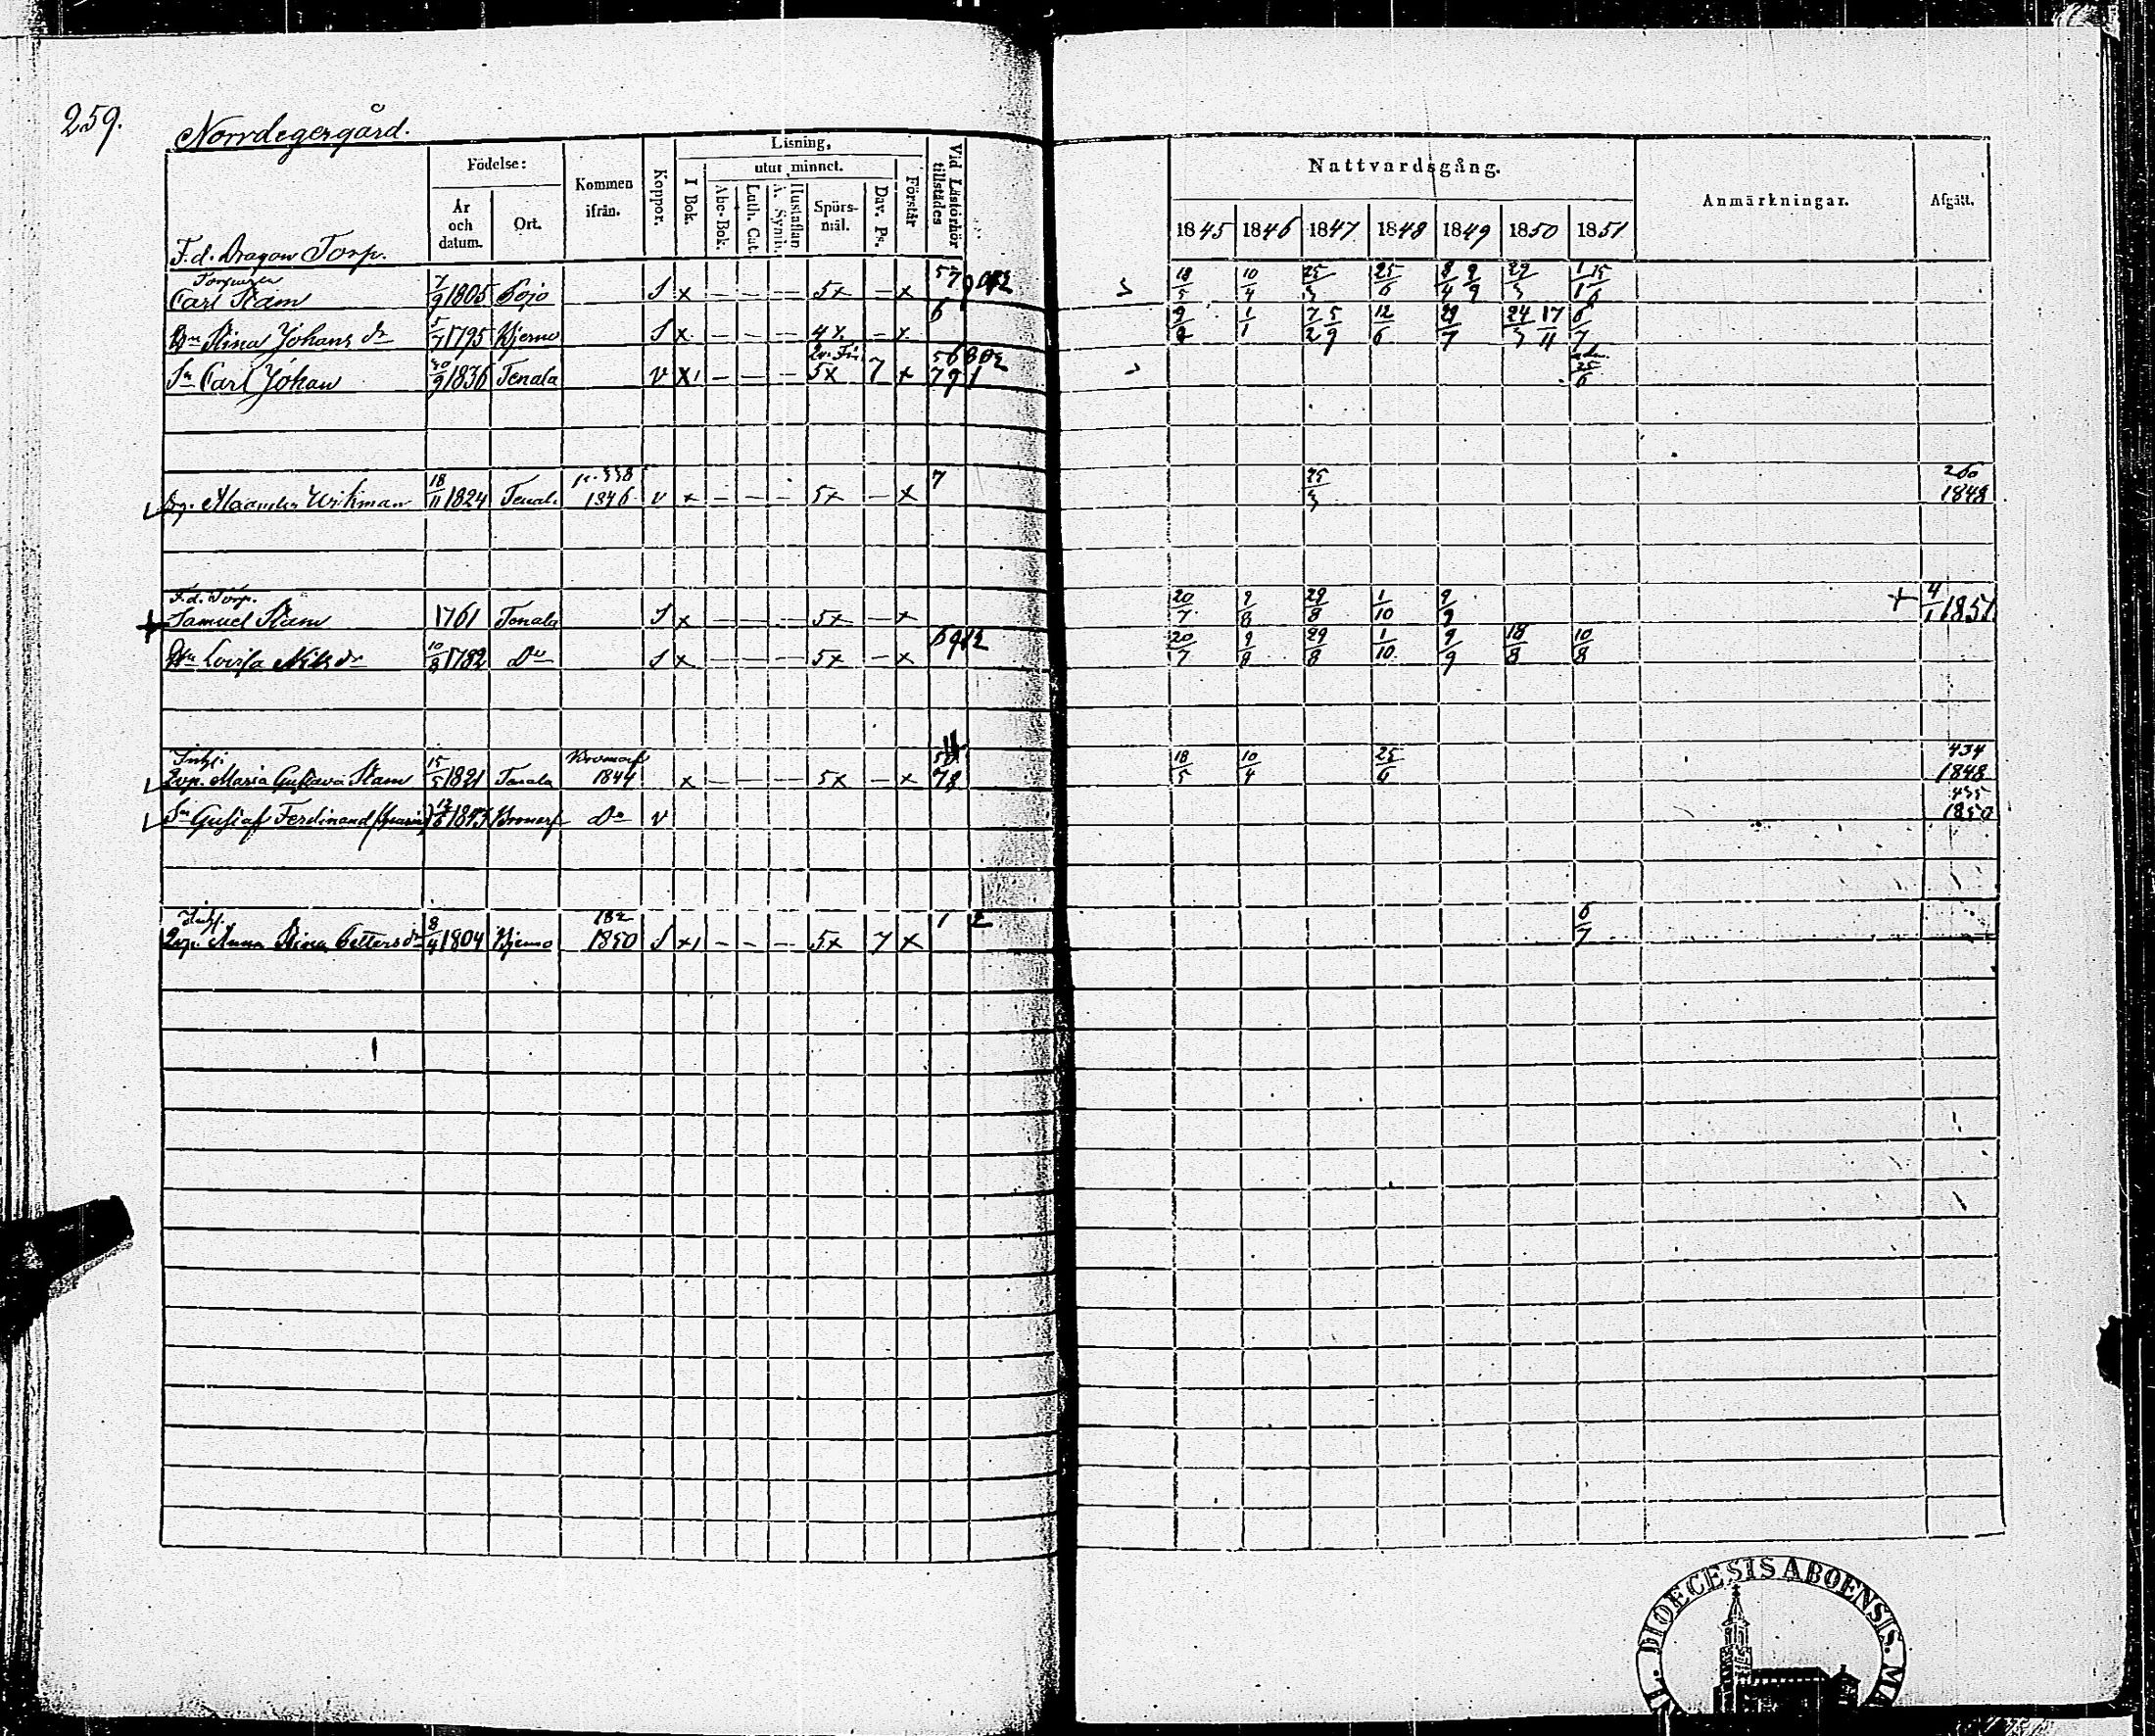 259.
Norrdegergård.
Födelse:
År och datum.
Ort.
Kommen ifrån.
Koppor.
Läsning,
I Bok.
utur minnet.
Abc-Bok.
Luth. Cat.
Hustaflan A. Symb.
Spörs-mål.
Dav. Ps.
Förstår
Vid Läsförhör tillstädes
Nattvardsgång.
1845 1846 1847 1848 1849 1850 1851
Anmärkningar.
Afgått.
F.d. Dragon Torp.
Carl Stam 7/9 1805 Pojo S x — — — 5x — x 57 18/5 10/4 25/3 25/6 8/4 9/9 29/3 1/1 15/6
Stina Johans dr 5/7 1795 Kjemo S x — — — 4x — x 6 1/1 7/2 5/9 12/6 29/7 24/3 17/11 6/7
Sn Carl Johan 30/9 1836 Tenala v x — — — 5x 7 x 25/6
Wikman 18/11 1824 Tenal. 1846 v x — — — 5x — x 7 25/3 260 1848
F.d. Torp.
Samuel Stam 1761 Tenala S x — — — 5x — x 20/7 9/8 29/8 1/10 9/9 + 4/1 1851.
Lovisa Nils dr 10/8 1782 Do S x — — — 5x — x 20/7 9/8 29/8 1/10 9/9 18/8 10/8
Inh.
Maria Gustava Stam 15/5 1821 Tenala Bromarf 1844 x 5x — x 78 18/5 10/4 25/6 434 1848
Sn Gustaf Ferdinand 12/6 1843 Bromarf Do v 435 1850
Inh.
Anna Stina Petters dr 8/4 1804 Kjemo 182 1850 S x — — — 5x 7 x 1 2 6/7
DIOECESIS ABOENSIS. M